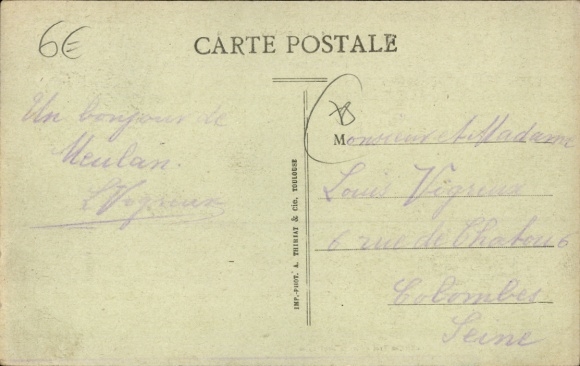 6€
CARTE POSTALE
Un bonjour de
Meulan.
L Vigreux
IMP.-PHOT. A. THIRIAT & Cie, TOULOUSE
Monsieur et Madame
Louis Vigreux
6 rue de Chatou 6
Colombes
Seine